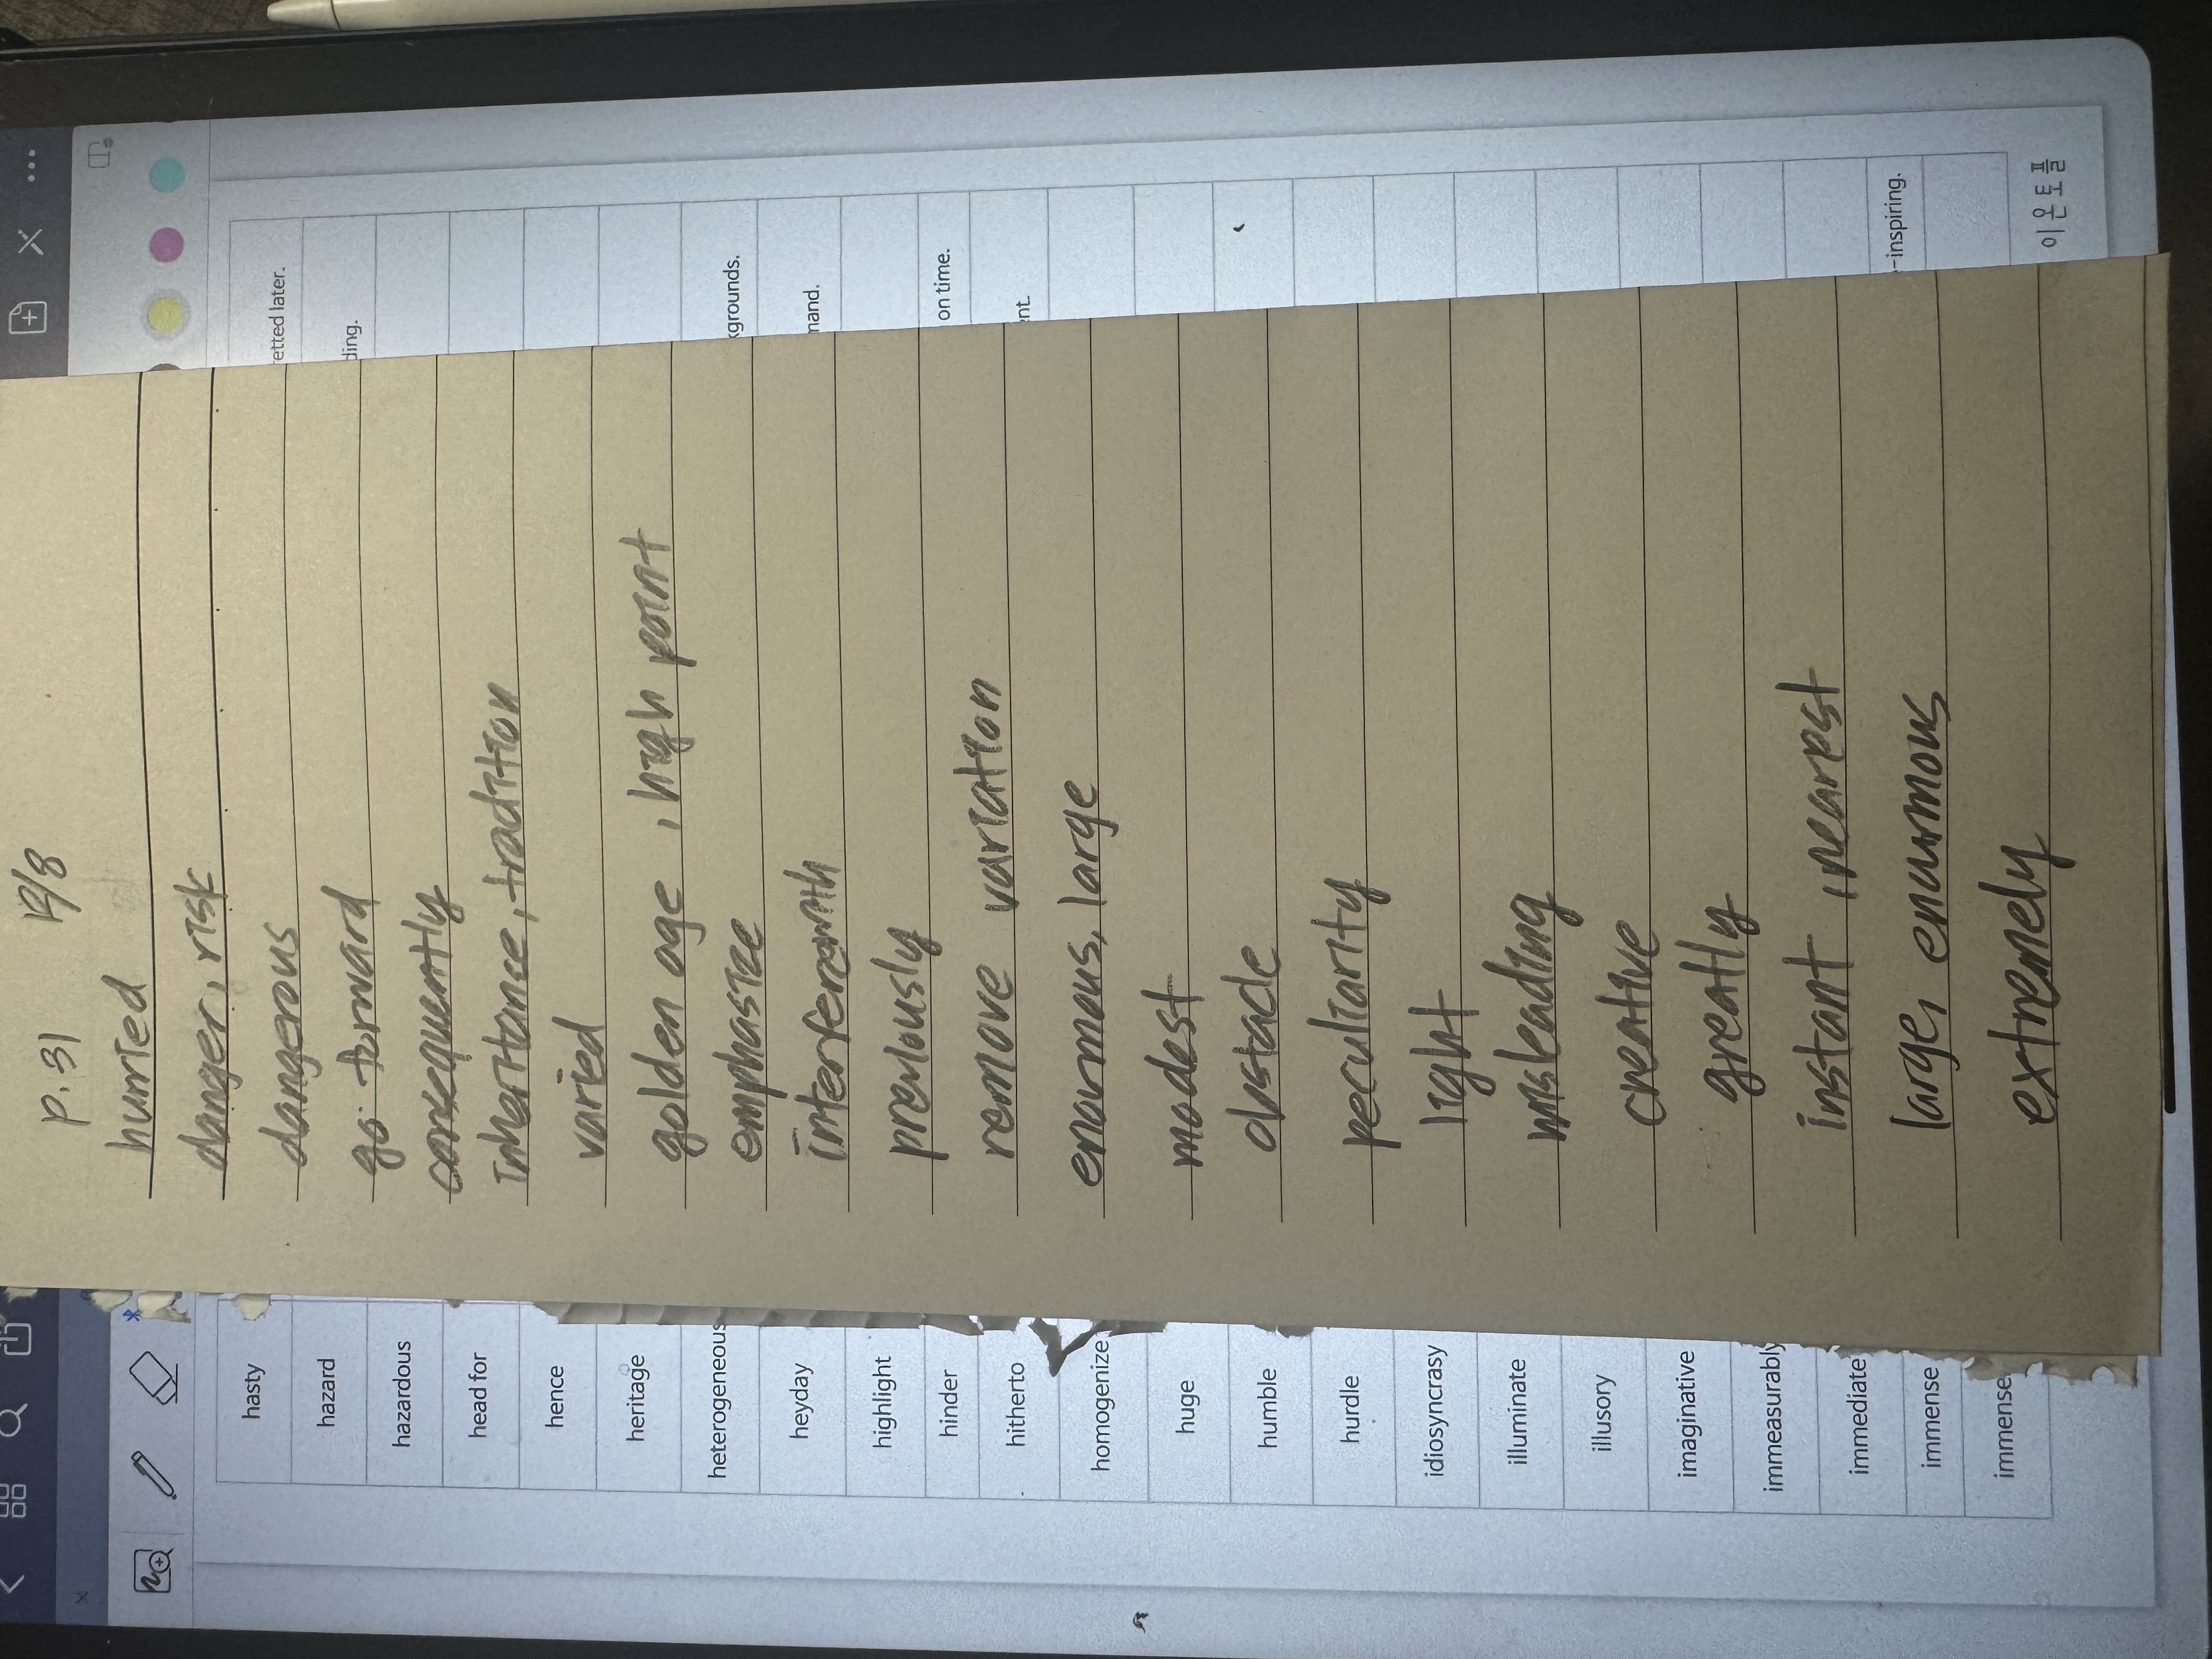 p.31 12/8
hasty hurried retted later.
hazard danger, risk ding.
hazardous dangerous
head for go forward
hence consequently
heritage inheritance, tradition
heterogeneous varied kgrounds.
heyday golden age, high point mand.
highlight emphasize
hinder interfere with on time.
hitherto previously nt.
homogenize remove variation
huge enourmous, large
humble modest
hurdle obstacle
idiosyncrasy peculiarity
illuminate light
illusory misleading
imaginative creative
immeasurably greatly
immediate instant, nearest
immense large, enurmous -inspiring.
immense extremely
이 운 토 플